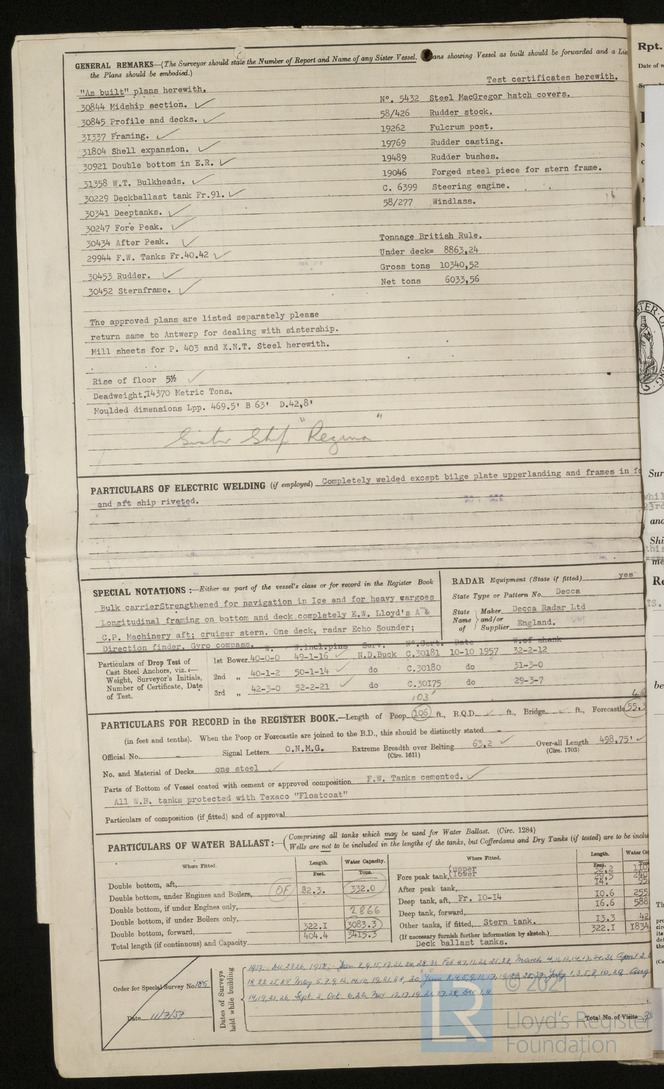 GENERAL REMARKS—(The Surveyor should state the Number of Report and Name of any Sister Vessel. Plans showing Vessel as built should be forwarded and a
the Plans should be embodied.)
Test certificates herewith.
"As built" plans herewith.
30844 Midship section. ✓
30845 Profile and decks. ✓
31337 Framing. ✓
31804 Shell expansion. ✓
30921 Double bottom in E.R. ✓
31358 W.T. Bulkheads. ✓
30229 Deckballast tank Fr.91. ✓
30341 Deeptanks. ✓
30247 Fore Peak. ✓
30434 After Peak. ✓
29944 F.W. Tanks Fr.40.42 ✓
30453 Rudder. ✓
30452 Sternframe. ✓
No. 5432 Steel MacGregor hatch covers.
58/426 Rudder stock.
19262 Fulcrum post.
19769 Rudder casting.
19489 Rudder bushes.
19046 Forged steel piece for stern frame.
C. 6399 Steering engine.
58/277 Windlass.
Tonnage British Rule.
Under deck= 8863,24
Gross tons 10340,52
Net tons 6033,56
The approved plans are listed separately please
return same to Antwerp for dealing with sistership.
Mill sheets for P. 403 and X.N.T. Steel herewith.
Rise of floor 5½ ✓
Deadweight.14370 Metric Tons.
Moulded dimensions Lpp. 469.5' B 63' D.42,8'
Sister Ship "Regina"
PARTICULARS OF ELECTRIC WELDING (if employed) Completely welded except bilge plate upperlanding and frames in
and aft ship riveted.
SPECIAL NOTATIONS :—Either as part of the vessel's class or for record in the Register Book
Bulk carrierStrengthened for navigation in Ice and for heavy wargoes
Longitudinal framing on bottom and deck completely E.W. Lloyd's A &
C.P. Machinery aft; cruiser stern. One deck, radar Echo Sounder;
Direction finder, Gyro compass.
RADAR Equipment (State if fitted) yes
State Type or Pattern No. Decca
State Name of Maker and/or Supplier Decca Radar Ltd England.
Particulars of Drop Test of Cast Steel Anchors, viz.:— Weight, Surveyor's Initials, Number of Certificate, Date of Test.
1st Bower 40-0-0 49-1-16 ✓ N.D.Buck C.30181 10-10 1957 32-2-12
2nd „ 40-1-2 50-1-14 ✓ do C.30180 do 31-3-0
3rd „ 42-3-0 52-2-21 ✓ do C.30175 do 29-3-7
103'
PARTICULARS FOR RECORD in the REGISTER BOOK.—Length of Poop 106 ft., R.Q.D. ft., Bridge ft., Forecastle 55.
(in feet and tenths). When the Poop or Forecastle are joined to the B.D., this should be distinctly stated
Official No. Signal Letters O.N.M.G. Extreme Breadth over Belting 63.2 ✓ Over-all Length 498,75' ✓
(Circ. 1611) (Circ. 1703)
No. and Material of Decks one steel
Parts of Bottom of Vessel coated with cement or approved composition F.W. Tanks cemented. ✓
All W.B. tanks protected with Texaco "Floatcoat"
Particulars of composition (if fitted) and of approval
PARTICULARS OF WATER BALLAST:— (Comprising all tanks which may be used for Water Ballast. (Circ. 1284)
Wells are not to be included in the lengths of the tanks, but Cofferdams and Dry Tanks (if tested) are to be
Where Fitted. Length. Feet. Water Capacity. Tons.
Double bottom, aft,
Double bottom, under Engines and Boilers, OF 82.3. 332.0
Double bottom, if under Engines only, 2866
Double bottom, if under Boilers only,
Double bottom, forward, 322.1 3083.3
Total length (if continuous) and Capacity 404.4 3415.3
Where Fitted. Length. Feet.
Fore peak tank (upper
(lower
After peak tank,
Deep tank, aft, Fr. 10-14 10.6 255
Deep tank, forward, 16.6 588
Other tanks, if fitted, Stern tank. 13.3 42
(If necessary furnish further information by sketch.) 322.1 1834
Deck ballast tanks.
Order for Special Survey No. 185
Date 11/3/57
Dates of Surveys held while building
Total No. of Visits
© 2021
LR
Lloyd's Register
Foundation
Rpt.